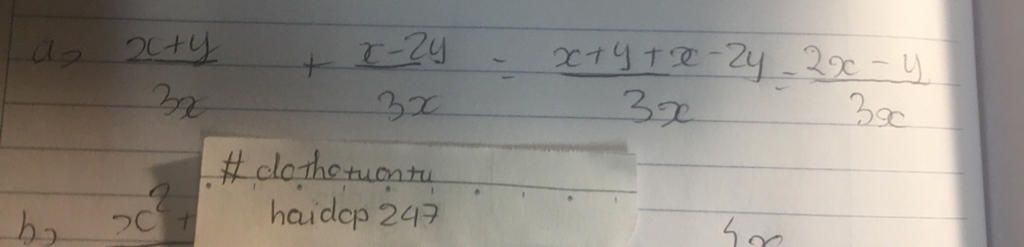 a, x+y/3x + x-2y/3x = x+y+x-2y/3x = 2x-y/3x
# clothetuontu
haidcp 247
b, x² +